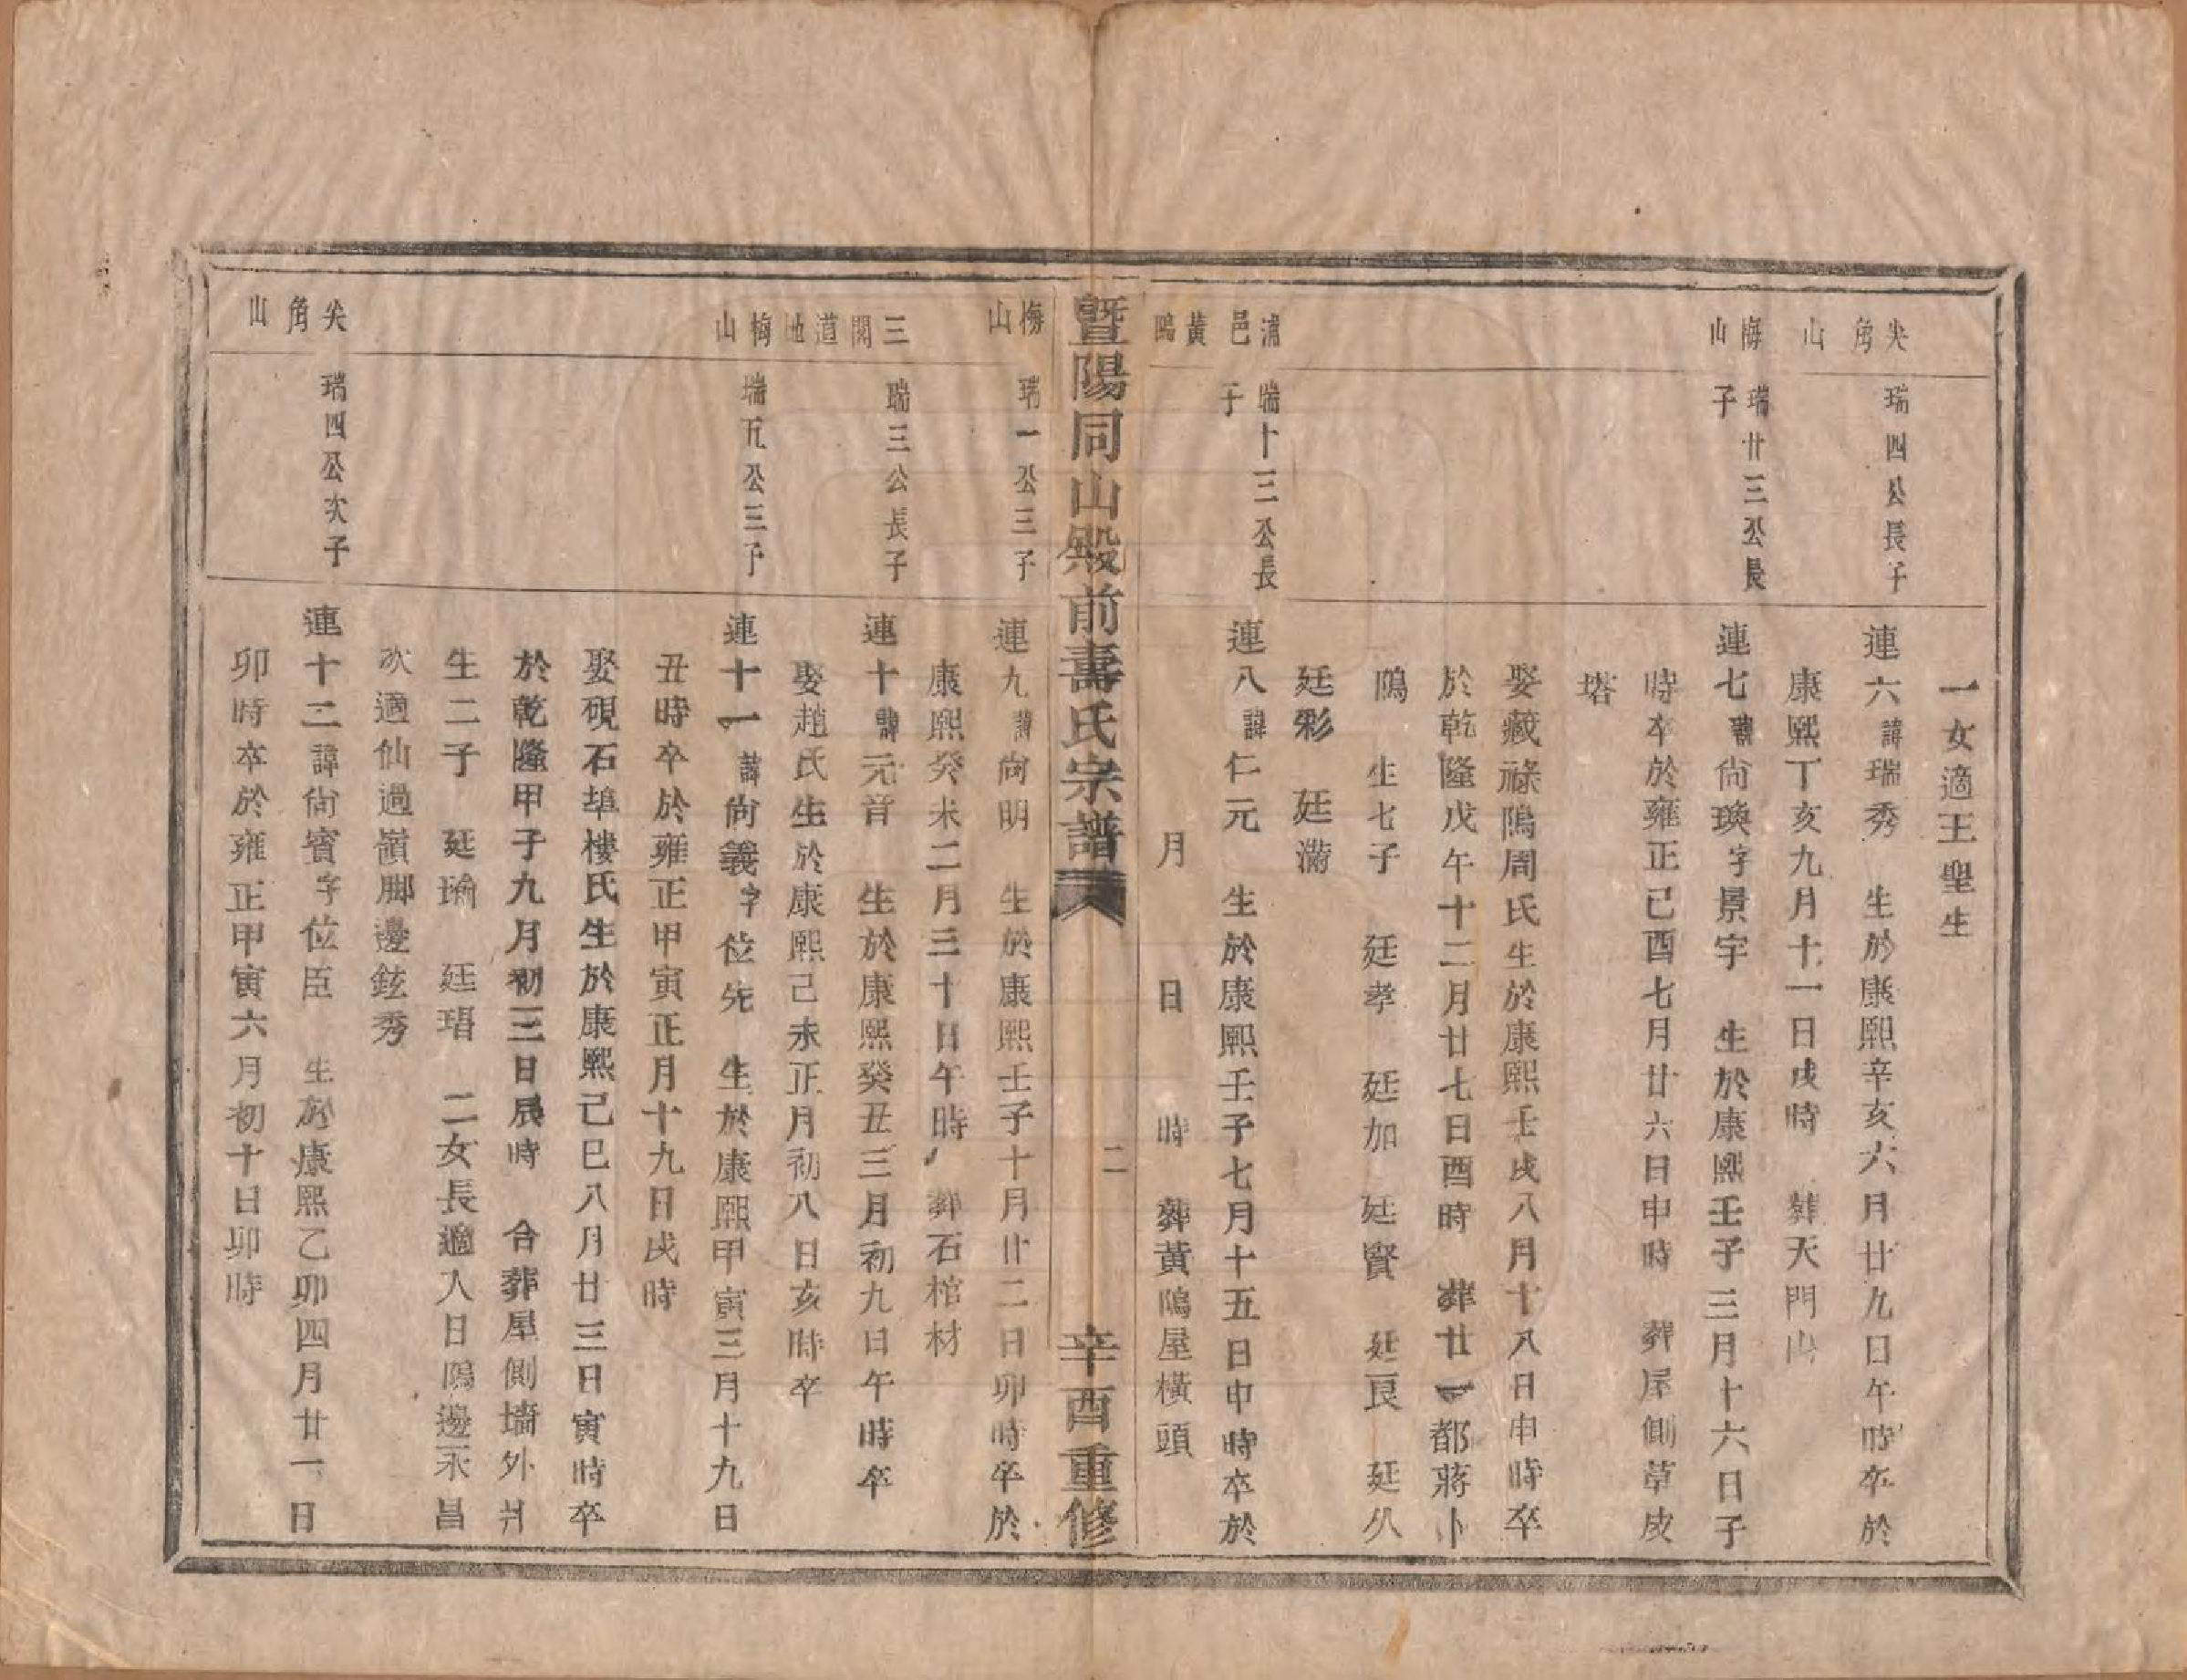 一女適王聖生
尖角山
瑞四公長子
連六諱瑞秀　生於康熙辛亥六月廿九日午時卒於
康熙丁亥九月十一日戌時　葬天門山
梅山
瑞廿三公長子
連七諱尙瑛字景宇　生於康熙壬子三月十六日子
時卒於雍正己酉七月廿六日申時　葬屋側草皮
塔
娶藏祿隝周氏生於康熙壬戌八月十八日申時卒
於乾隆戊午十二月廿七日酉時　葬廿一都蔣卜
隝　生七子　廷孝　廷加　廷賢　廷良　廷八
廷彩　廷滿
浦邑黃隝
瑞十三公長子
連八諱仁元　生於康熙壬子七月十五日申時卒於
月　日　時　葬黃隝屋橫頭
暨陽同山殿前壽氏宗譜　二　辛酉重修
梅山
瑞一公三子
連九諱尙明　生於康熙壬子十月廿二日卯時卒於
康熙癸未二月三十日午時　葬石棺材
三閱道地
瑞三公長子
連十諱元音　生於康熙癸丑三月初九日午時卒
娶趙氏生於康熙己未正月初八日亥時卒
梅山
瑞五公三子
連十一諱尙義字位先　生於康熙甲寅三月十九日
丑時卒於雍正甲寅正月十九日戌時
娶硯石埠樓氏生於康熙己巳八月廿三日寅時卒
於乾隆甲子九月初三日辰時　合葬屋側墻外幷
生二子　廷瑜　廷琩　二女長適入日隝邊永昌
次適仙過嶺脚邊鉉秀
尖角山
瑞四公次子
連十二諱尙賓字位臣　生於康熙乙卯四月廿一日
卯時卒於雍正甲寅六月初十日卯時